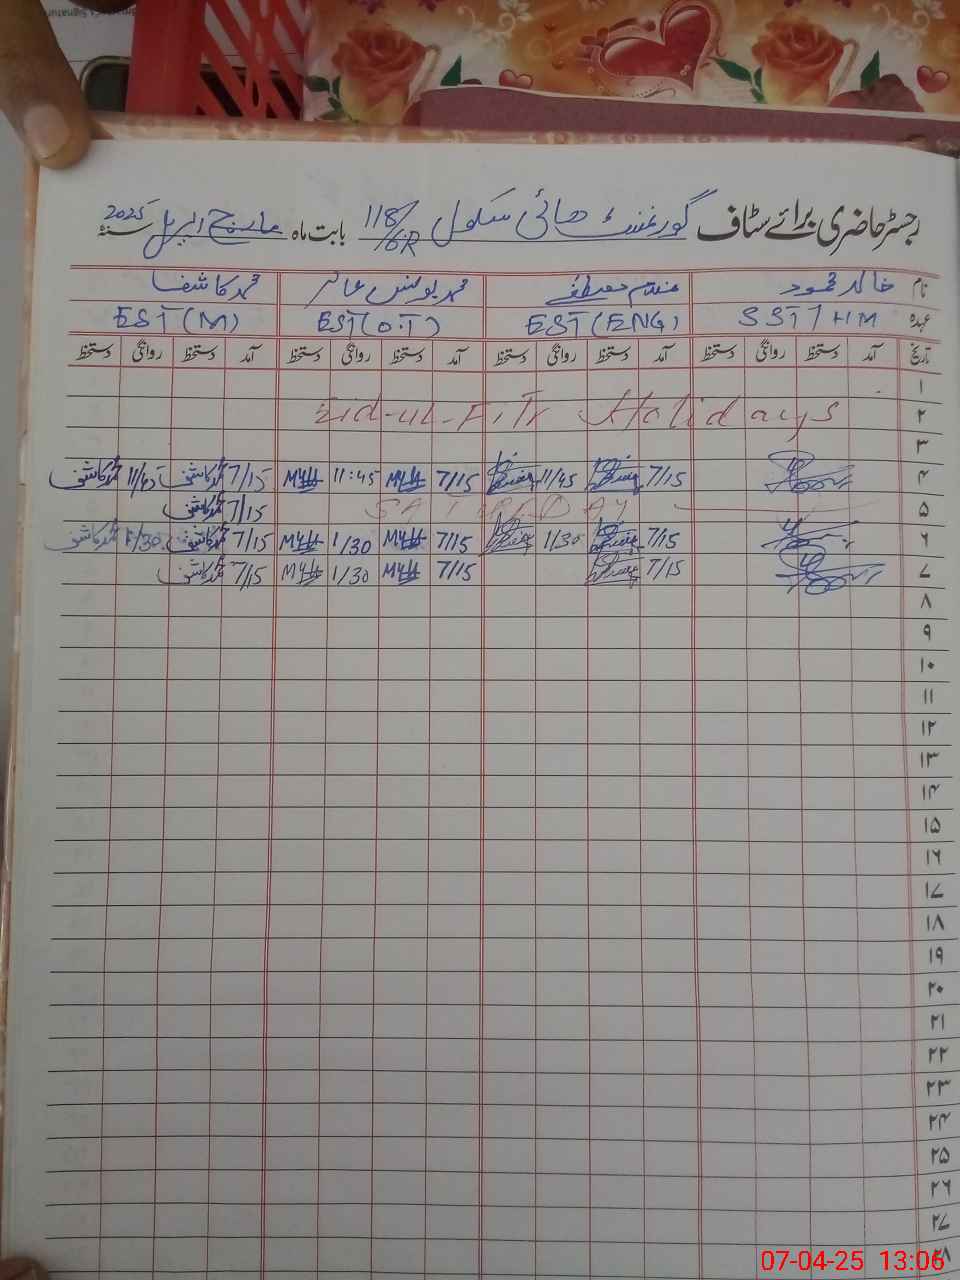 رجسٹر حاضری برائے سٹاف گورنمنٹ ھائی سکول 118/6R بابت ماہ مارچ اپریل 2025 سنہ
نام خالد محمود محمد یونس محمد کاشف
عہدہ SST / HM EST (ENG) EST (O.T) EST (M)
تاریخ آمد دستخط روانگی دستخط آمد دستخط روانگی دستخط آمد دستخط روانگی دستخط آمد دستخط روانگی دستخط
۱
۲ Eid-ul-Fitr Holidays
۳
۴ 7/15 11/45 7/15 11:45 7/15 محمد کاشف 11/45 محمد کاشف
۵ SATURDAY 7/15 محمد کاشف
۶ 7/15 1/30 7/15 1/30 7/15 محمد کاشف 1/30 محمد کاشف
۷ 7/15 7/15 1/30 7/15 محمد کاشف
۸
۹
۱۰
۱۱
۱۲
۱۳
۱۴
۱۵
۱۶
۱۷
۱۸
۱۹
۲۰
۲۱
۲۲
۲۳
۲۴
۲۵
۲۶
۲۷
۲۸
07-04-25 13:06